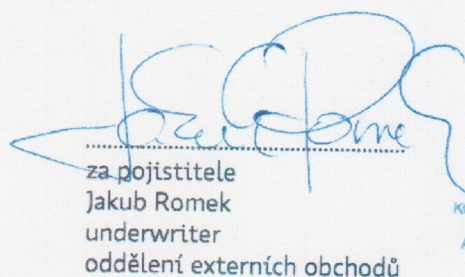 za pojistitele
Jakub Romek
underwriter
oddělení externích obchodů